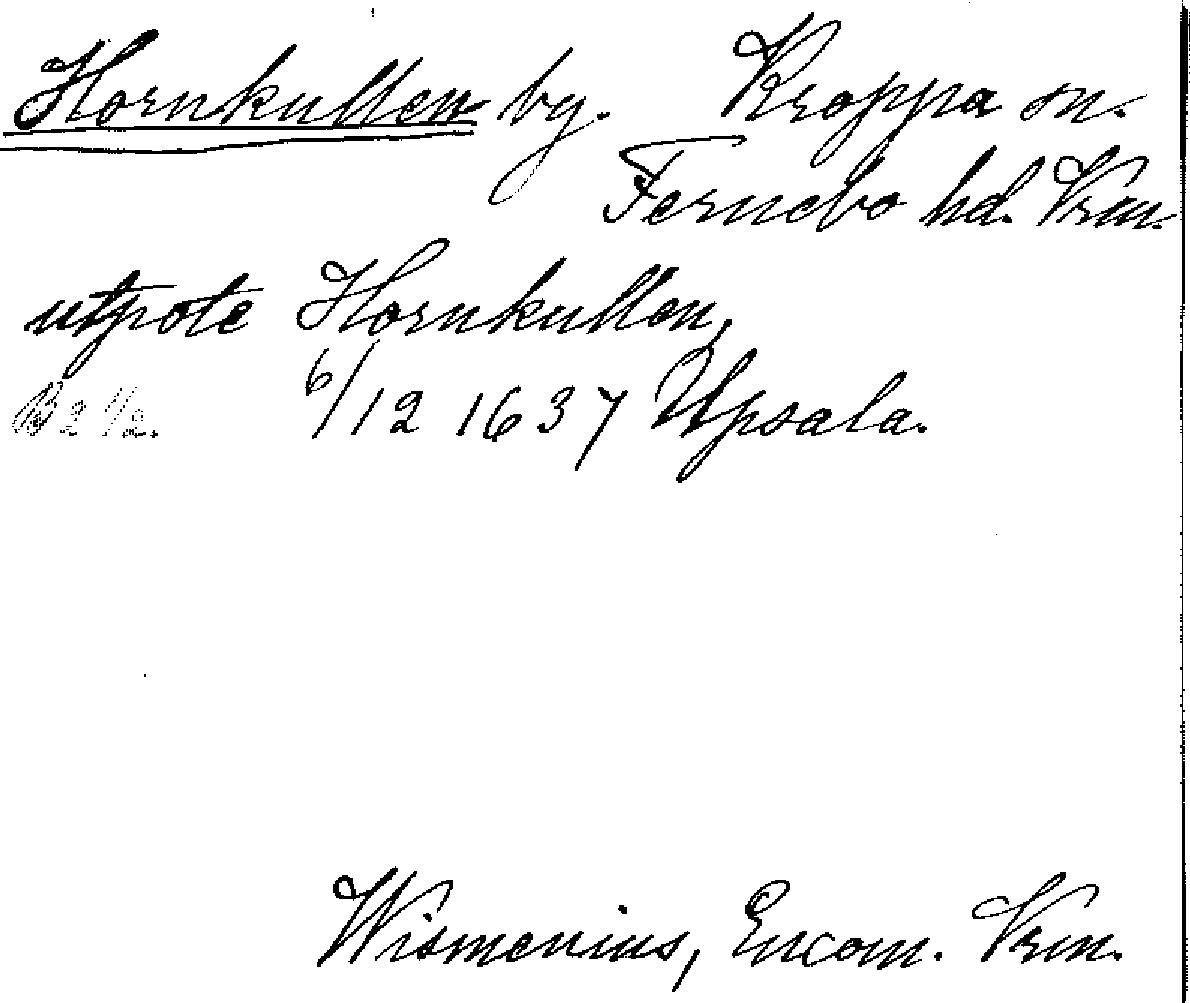 Hornkullen by. Kroppa sn.
Fernebo hd. Vrm.
utpote Hornkullen,
B2 1/2. 6/12 1637 Upsala.
Wismenius, Encom. Vrm.